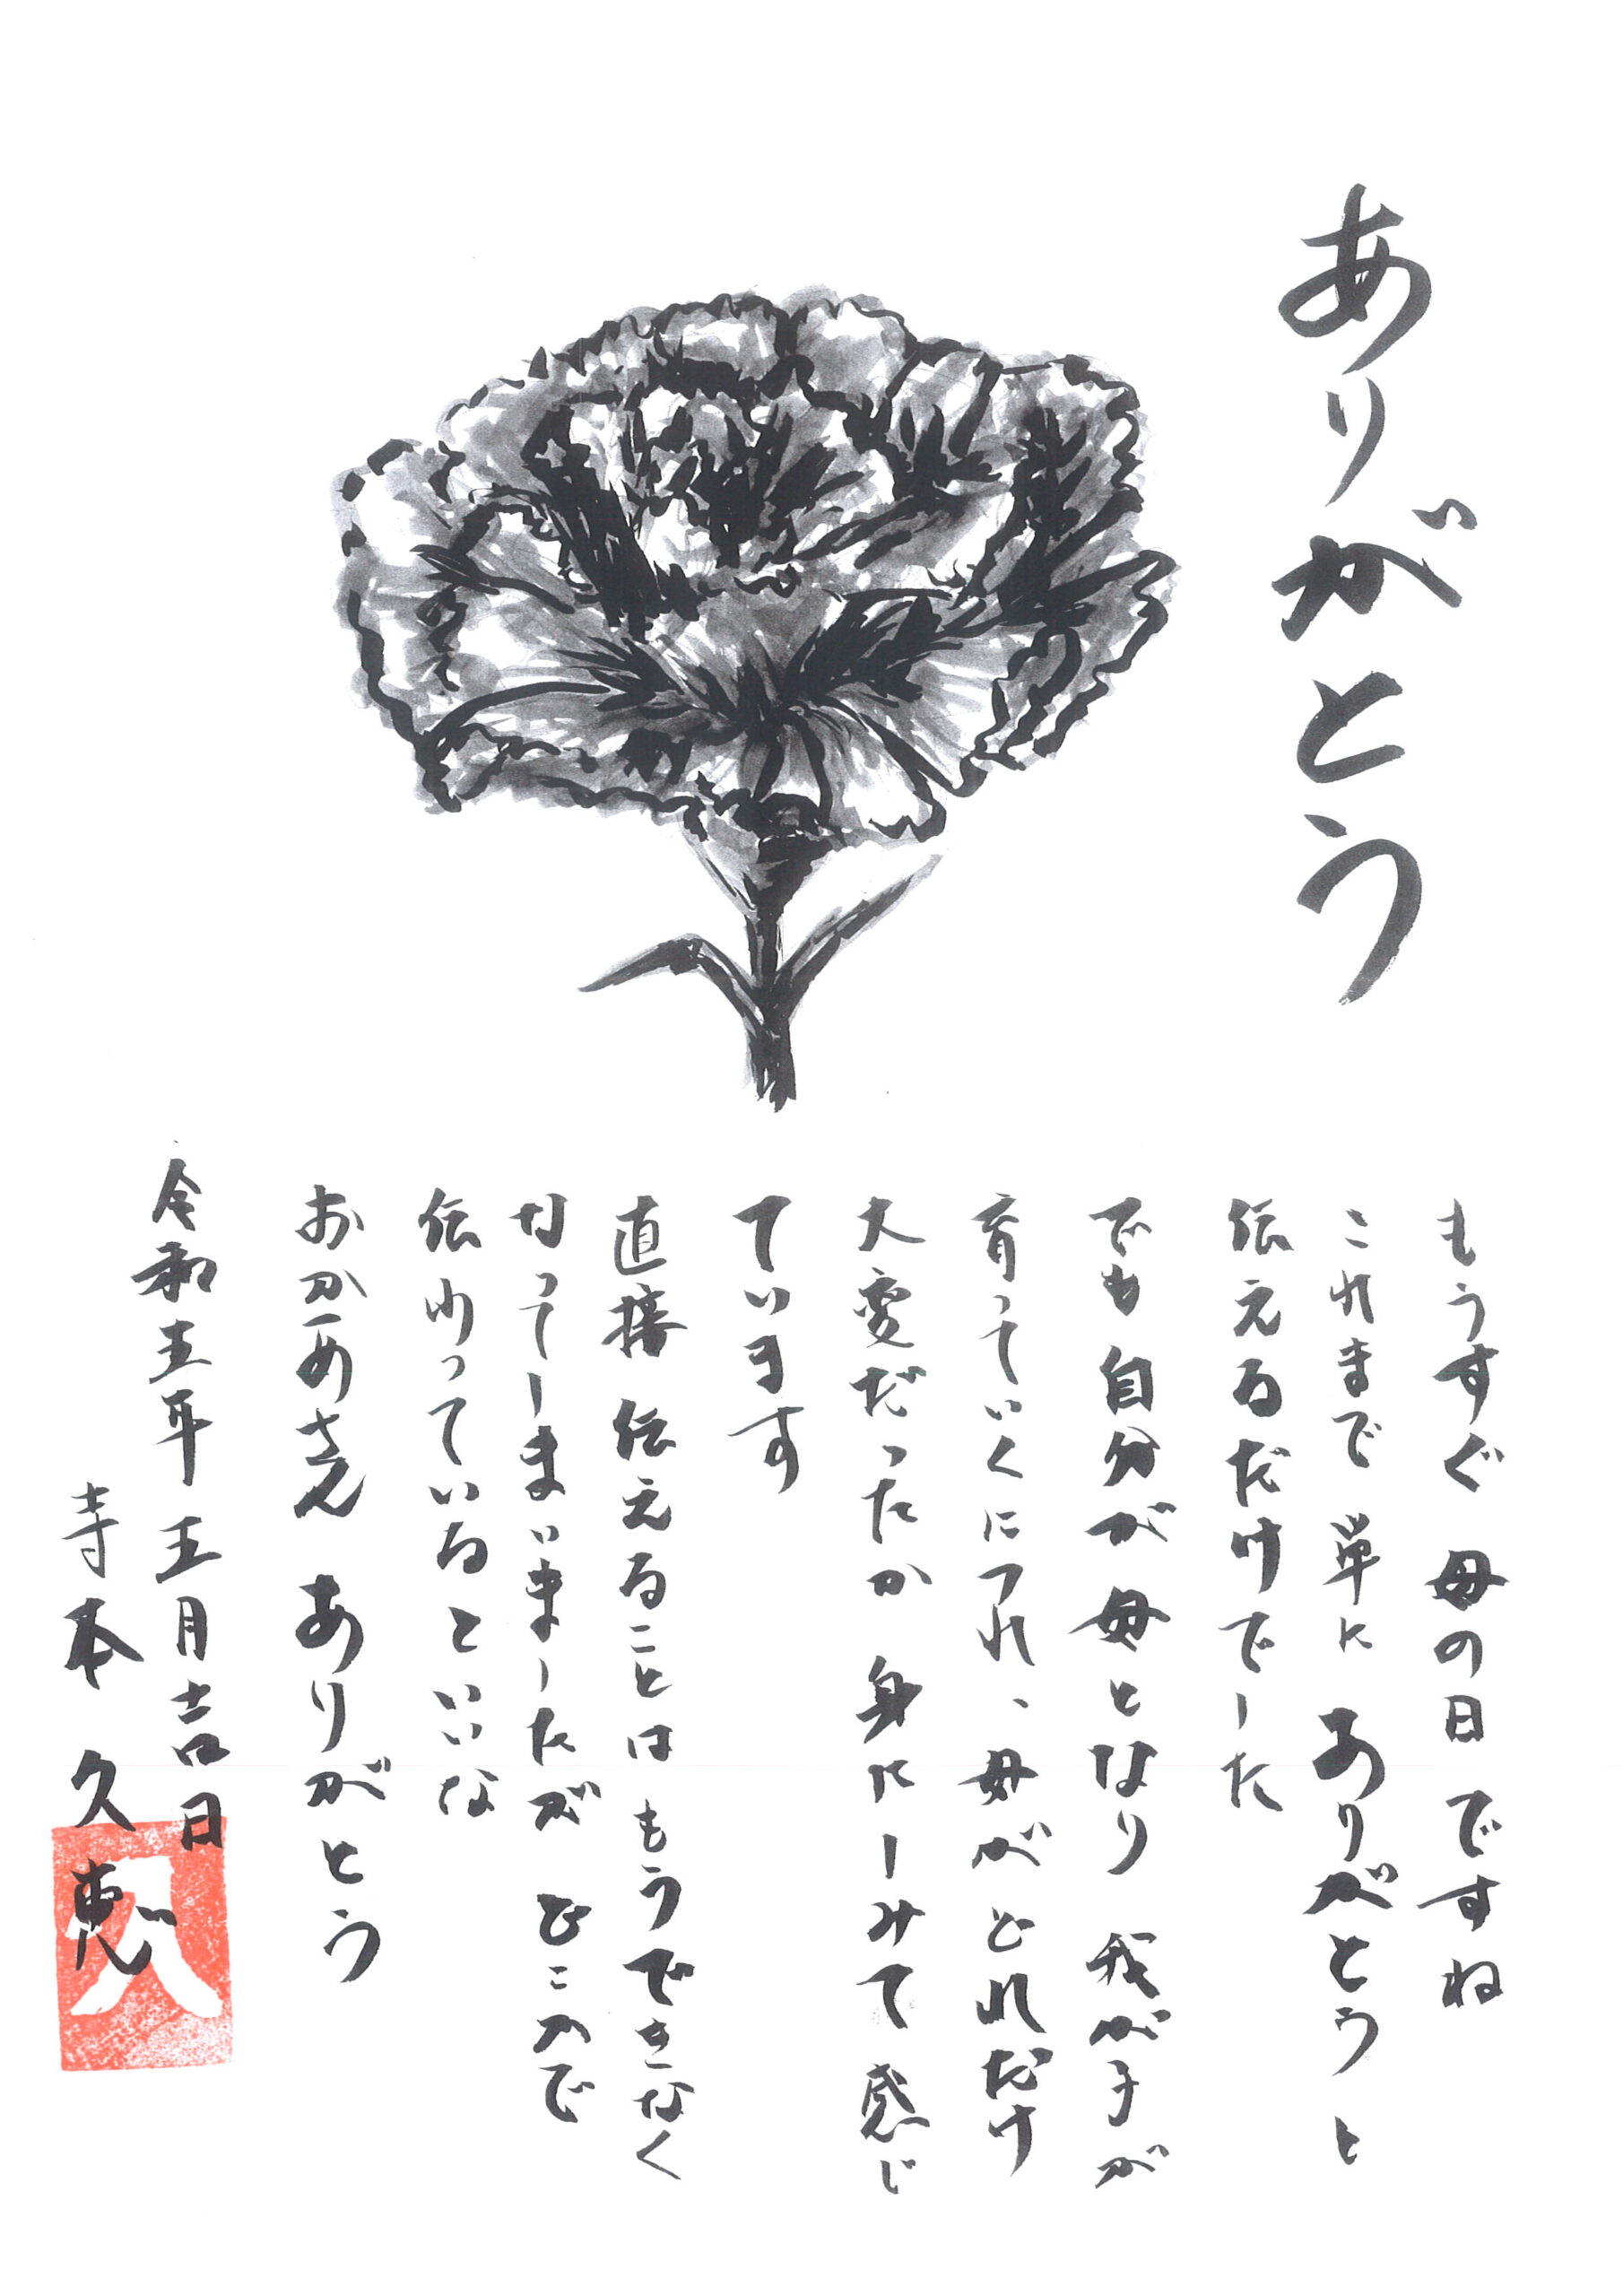 ありがとう
もうすぐ 母の日ですね
これまで 単に ありがとうと
伝えるだけでした
でも 自分が 母となり 我が子が
育っていくにつれ、母が どれだけ
大変だったか 身にしみて 感じ
ています
直接 伝えることは もうできなく
なってしまいましたが どこかで
伝わっているといいな
おかあさん ありがとう
令和五年 五月吉日
寺本 久恵
久